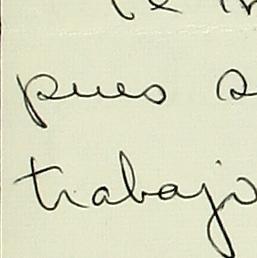 pues
trabajo